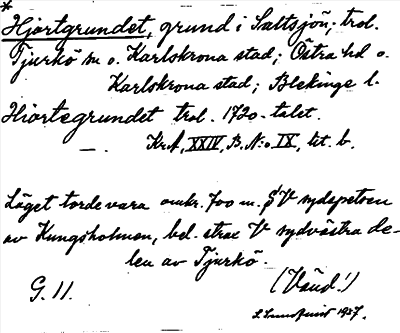 *
Hjortgrundet, grund i Saltsjön; trol.
Tjurkö sn o. Karlskrona stad; Östra hd o.
Karlskrona stad; Blekinge l.
Hiortegrundet trol. 1720-talet.
—. KrA, XXIV, B. N:o IX, lit. b.
Läget torde vara omkr. 700 m. V sydspetsen
av Kungsholmen, bel. strax V sydvästra de-
len av Tjurkö.
G. 11. (Vänd!)
1937.